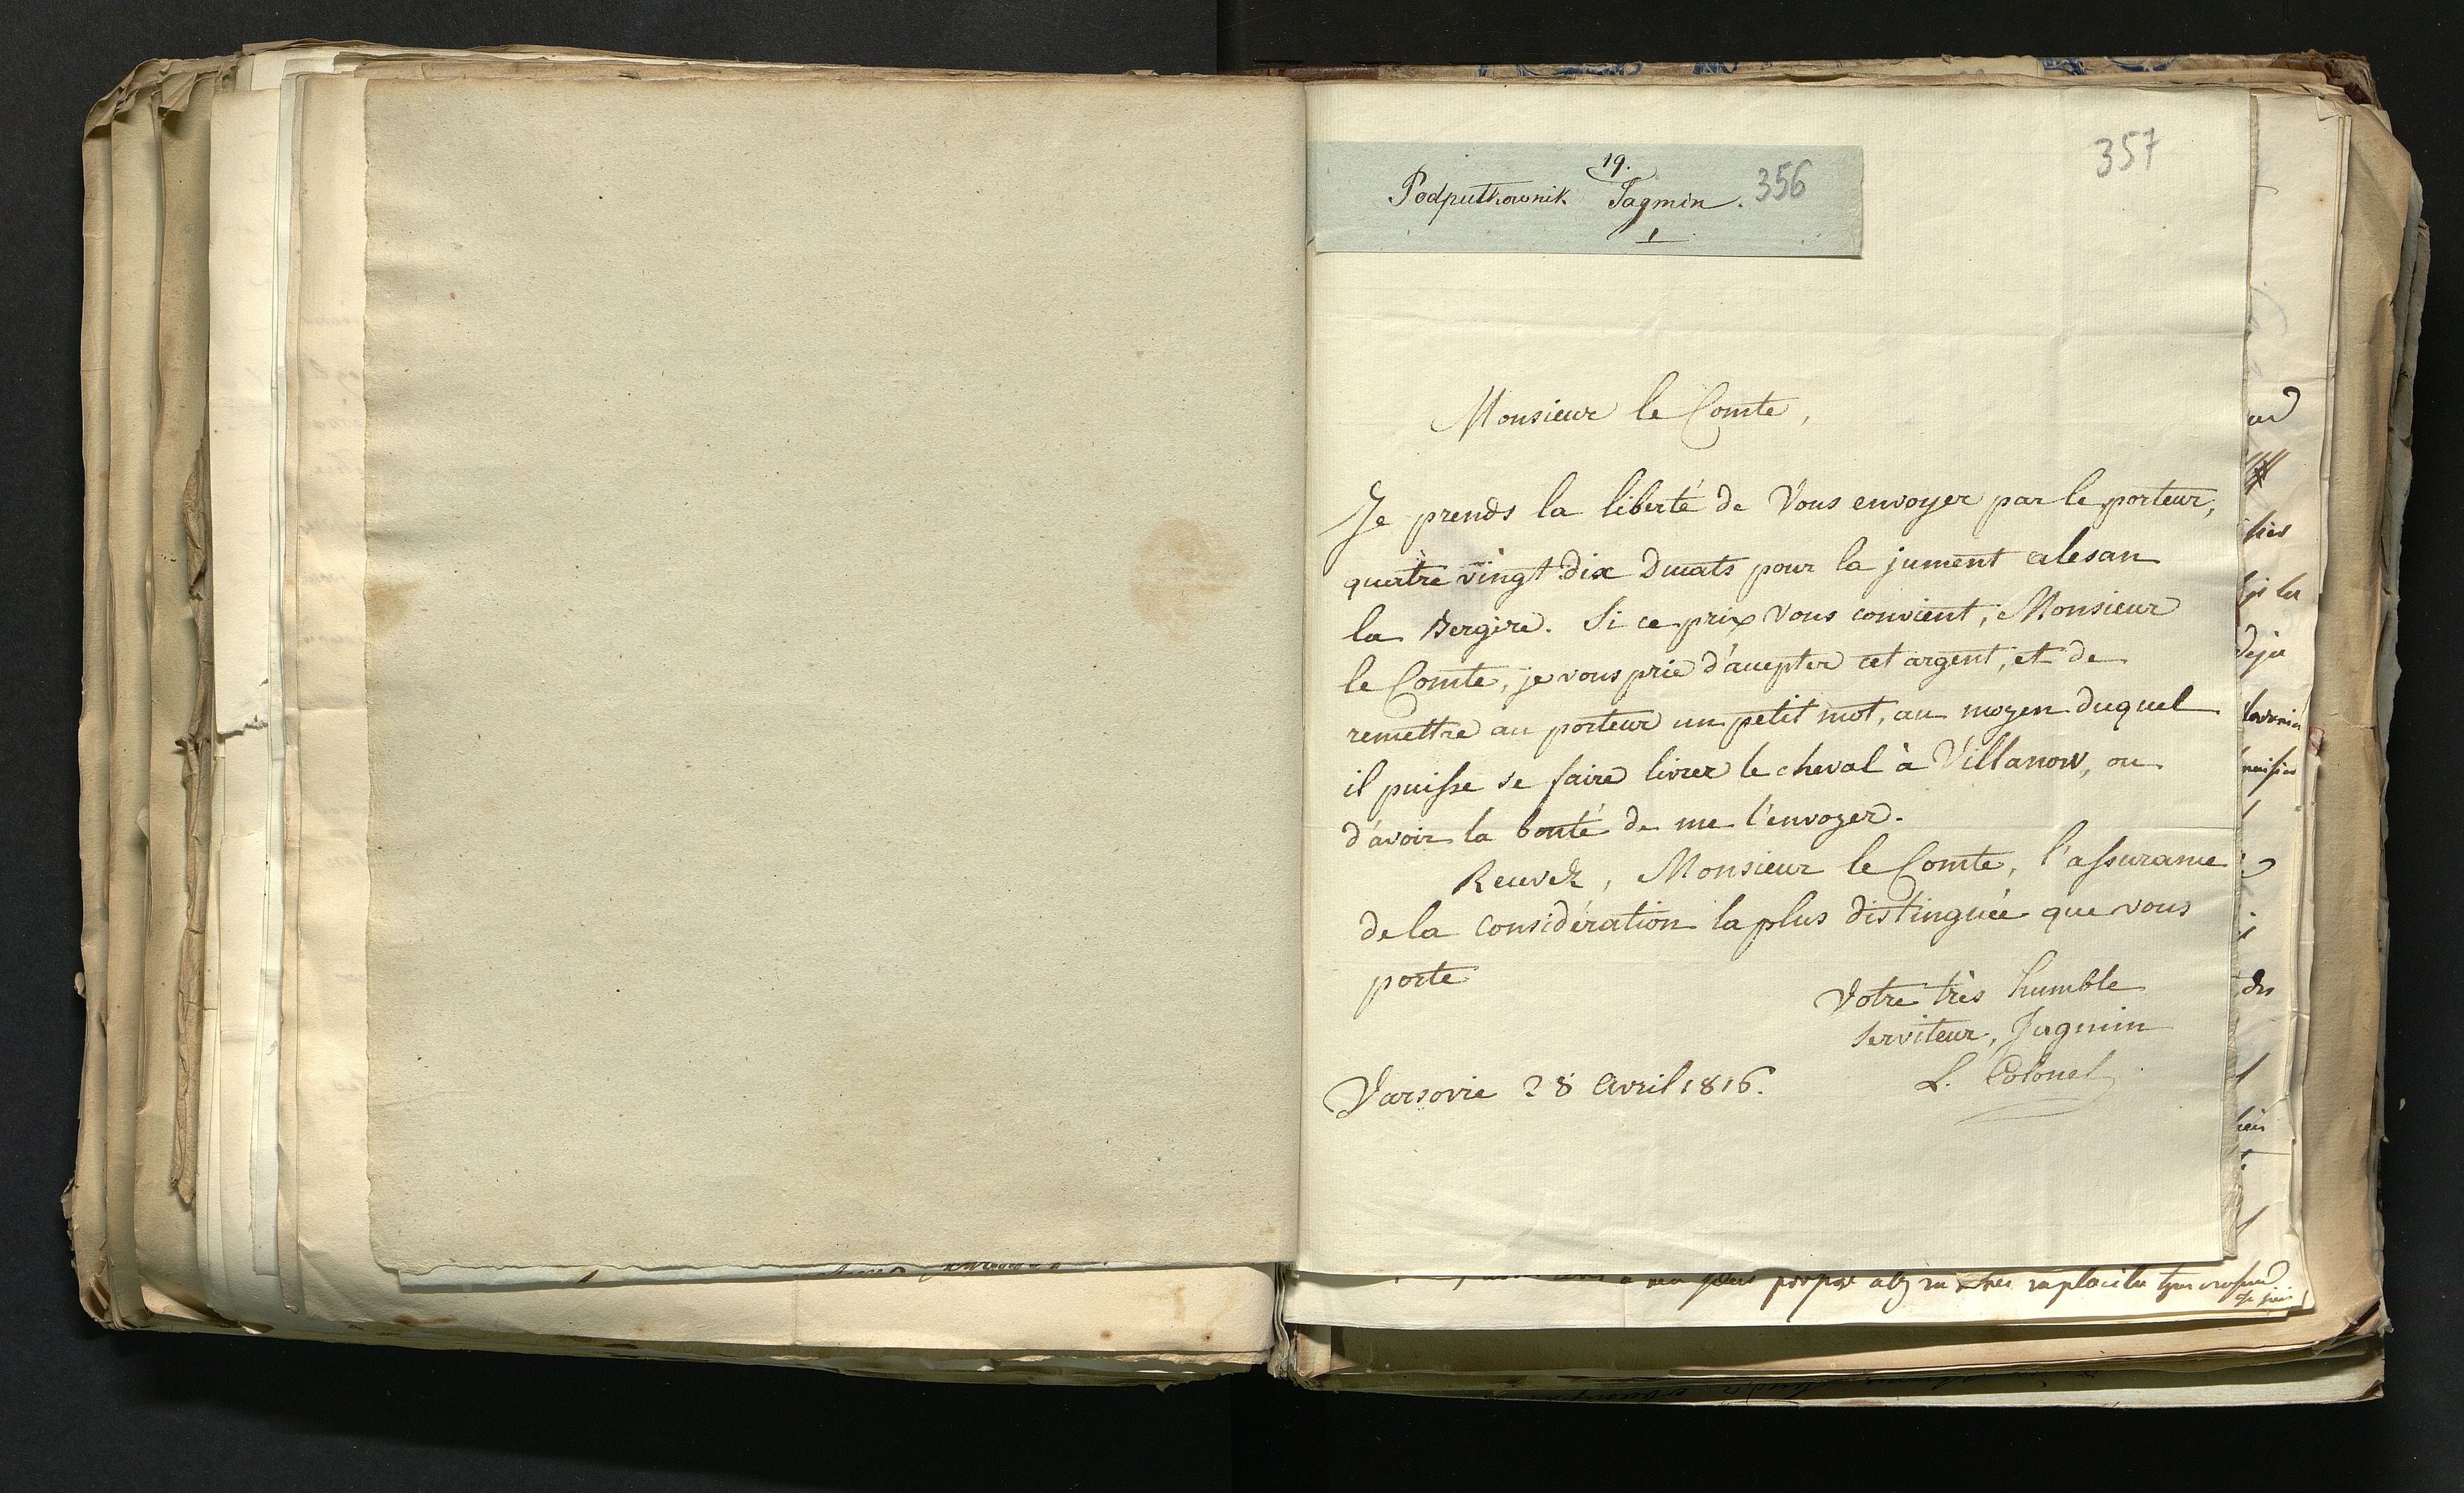 19.
Podpułkownik Jagmin. 356
1
357
Monsieur le Comte,
Je prends la liberté de Vous envoyer par le porteur,
quatre vingt dix Ducats pour la jument alesan
la Bergère. Si ce prix Vous convient, Monsieur
le Comte, je vous prie d'accepter cet argent, et de
remettre au porteur un petit mot, au moyen duquel
il puisse se faire livrer le cheval à Villanow, ou
d'avoir la bonté de me l'envoyer.
Recevez, Monsieur le Comte, l'assurance
de la considération la plus distinguée que vous
porte
Votre très humble
Serviteur, Jagmin
L. Colonel
Varsovie 28 Avril 1816.